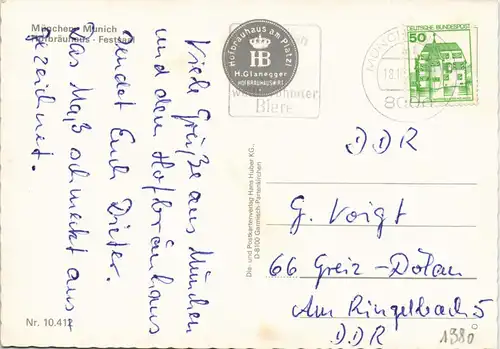 München · Munich
Hofbräuhaus · Festsaal
Viele Grüße aus München
und dem Hofbräuhaus
sendet Euch Dieter.
Das Maß schmeckt aus-
gezeichnet.
Nr. 10.412
Hofbräuhaus am Platzl
HB
H. Glanegger
Biere
Die- und Postkartenverlag Hans Huber KG.,
D-8100 Garmisch-Partenkirchen
MÜNCHEN
18.1
DEUTSCHE BUNDESPOST
50
DDR
G. Voigt
66 Greiz-Dölau
Am Ringelbach 5
DDR
1980